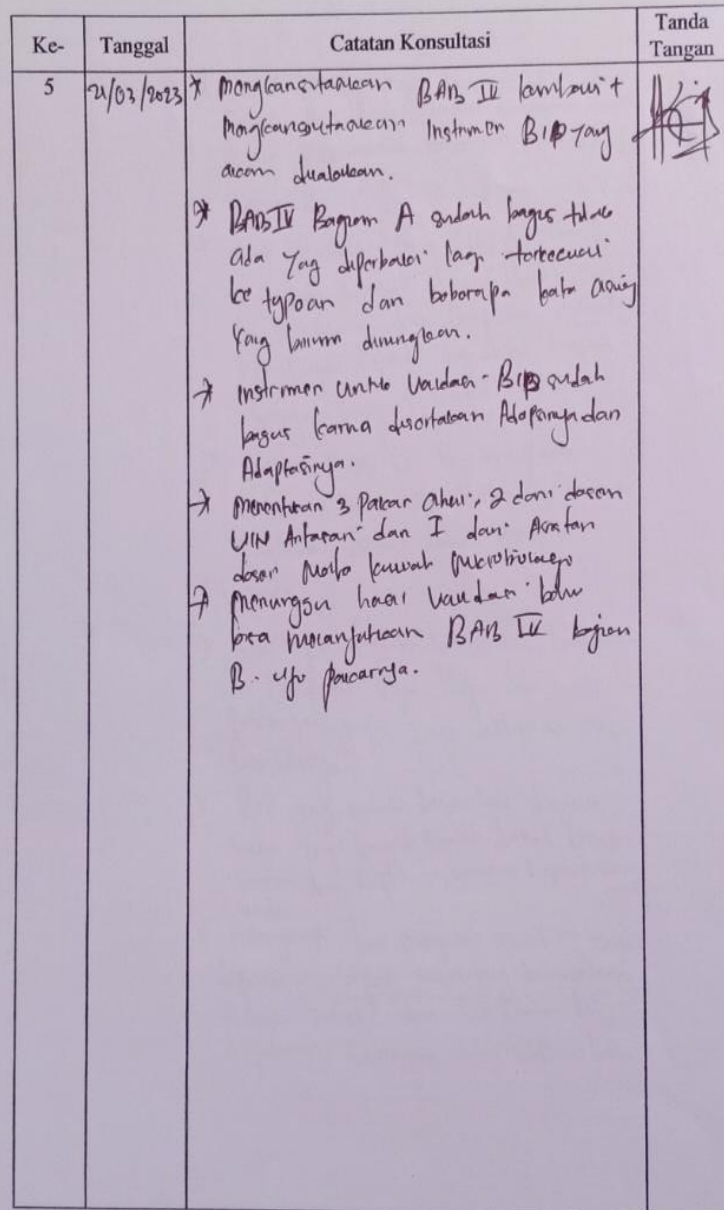 Ke- Tanggal Catatan Konsultasi Tanda Tangan
5 21/03/2023 * Mengkonsultasikan BAB IV kembali +
Mengkonsultasikan Instrumen BIP yang
akan divalidasikan.
* BAB IV Bagian A sudah bagus tidak
ada yang diperbaiki lagi terkecuali
ke typoan dan beberapa kata asing
yang belum dimiringkan.
→ instrumen untuk validasi BIP sudah
bagus karna disertakan Adopsinya dan
Adaptasinya.
→ Menentukan 3 Pakar ahli, 2 dari dosen
UIN Antasari dan I dari
dosen Mata kuliah
→ Menunggu hasil validasi baru
bisa melanjutkan BAB IV bagian
B. uji pakarnya.